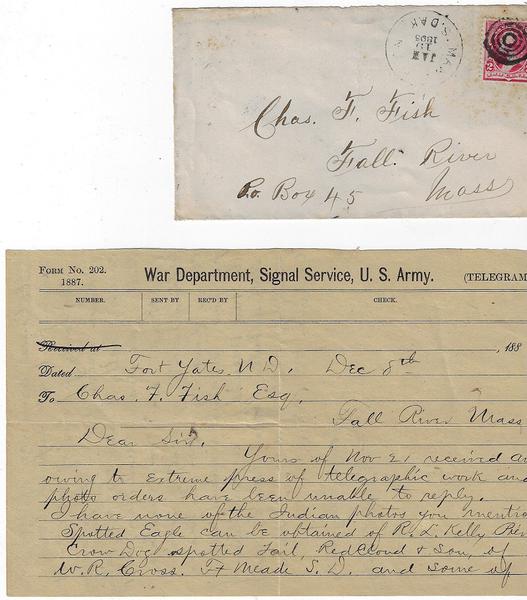 S. DAK
JAN
19
1893
2
Chas. F. Fish
Fall River
P.o. Box 45
Mass
Form No. 202.
1887.
War Department, Signal Service, U. S. Army.
(TELEGRAM
NUMBER.
SENT BY
REC'D BY
CHECK.
Received at
, 188
Dated Fort Yates, N D. Dec 8th
To Chas. F. Fish Esq.
Fall River Mass
Dear Sir,
Yours of Nov 21 received
owing to extreme press of telegraphic work and
photo orders have been unable to reply.
I have none of the Indian photos you mention
Spotted Eagle can be obtained of R. L. Kelly
Crow Dog spotted Tail, Red Cloud & Son, of
W. R. Cross. Ft Meade S. D. and some of